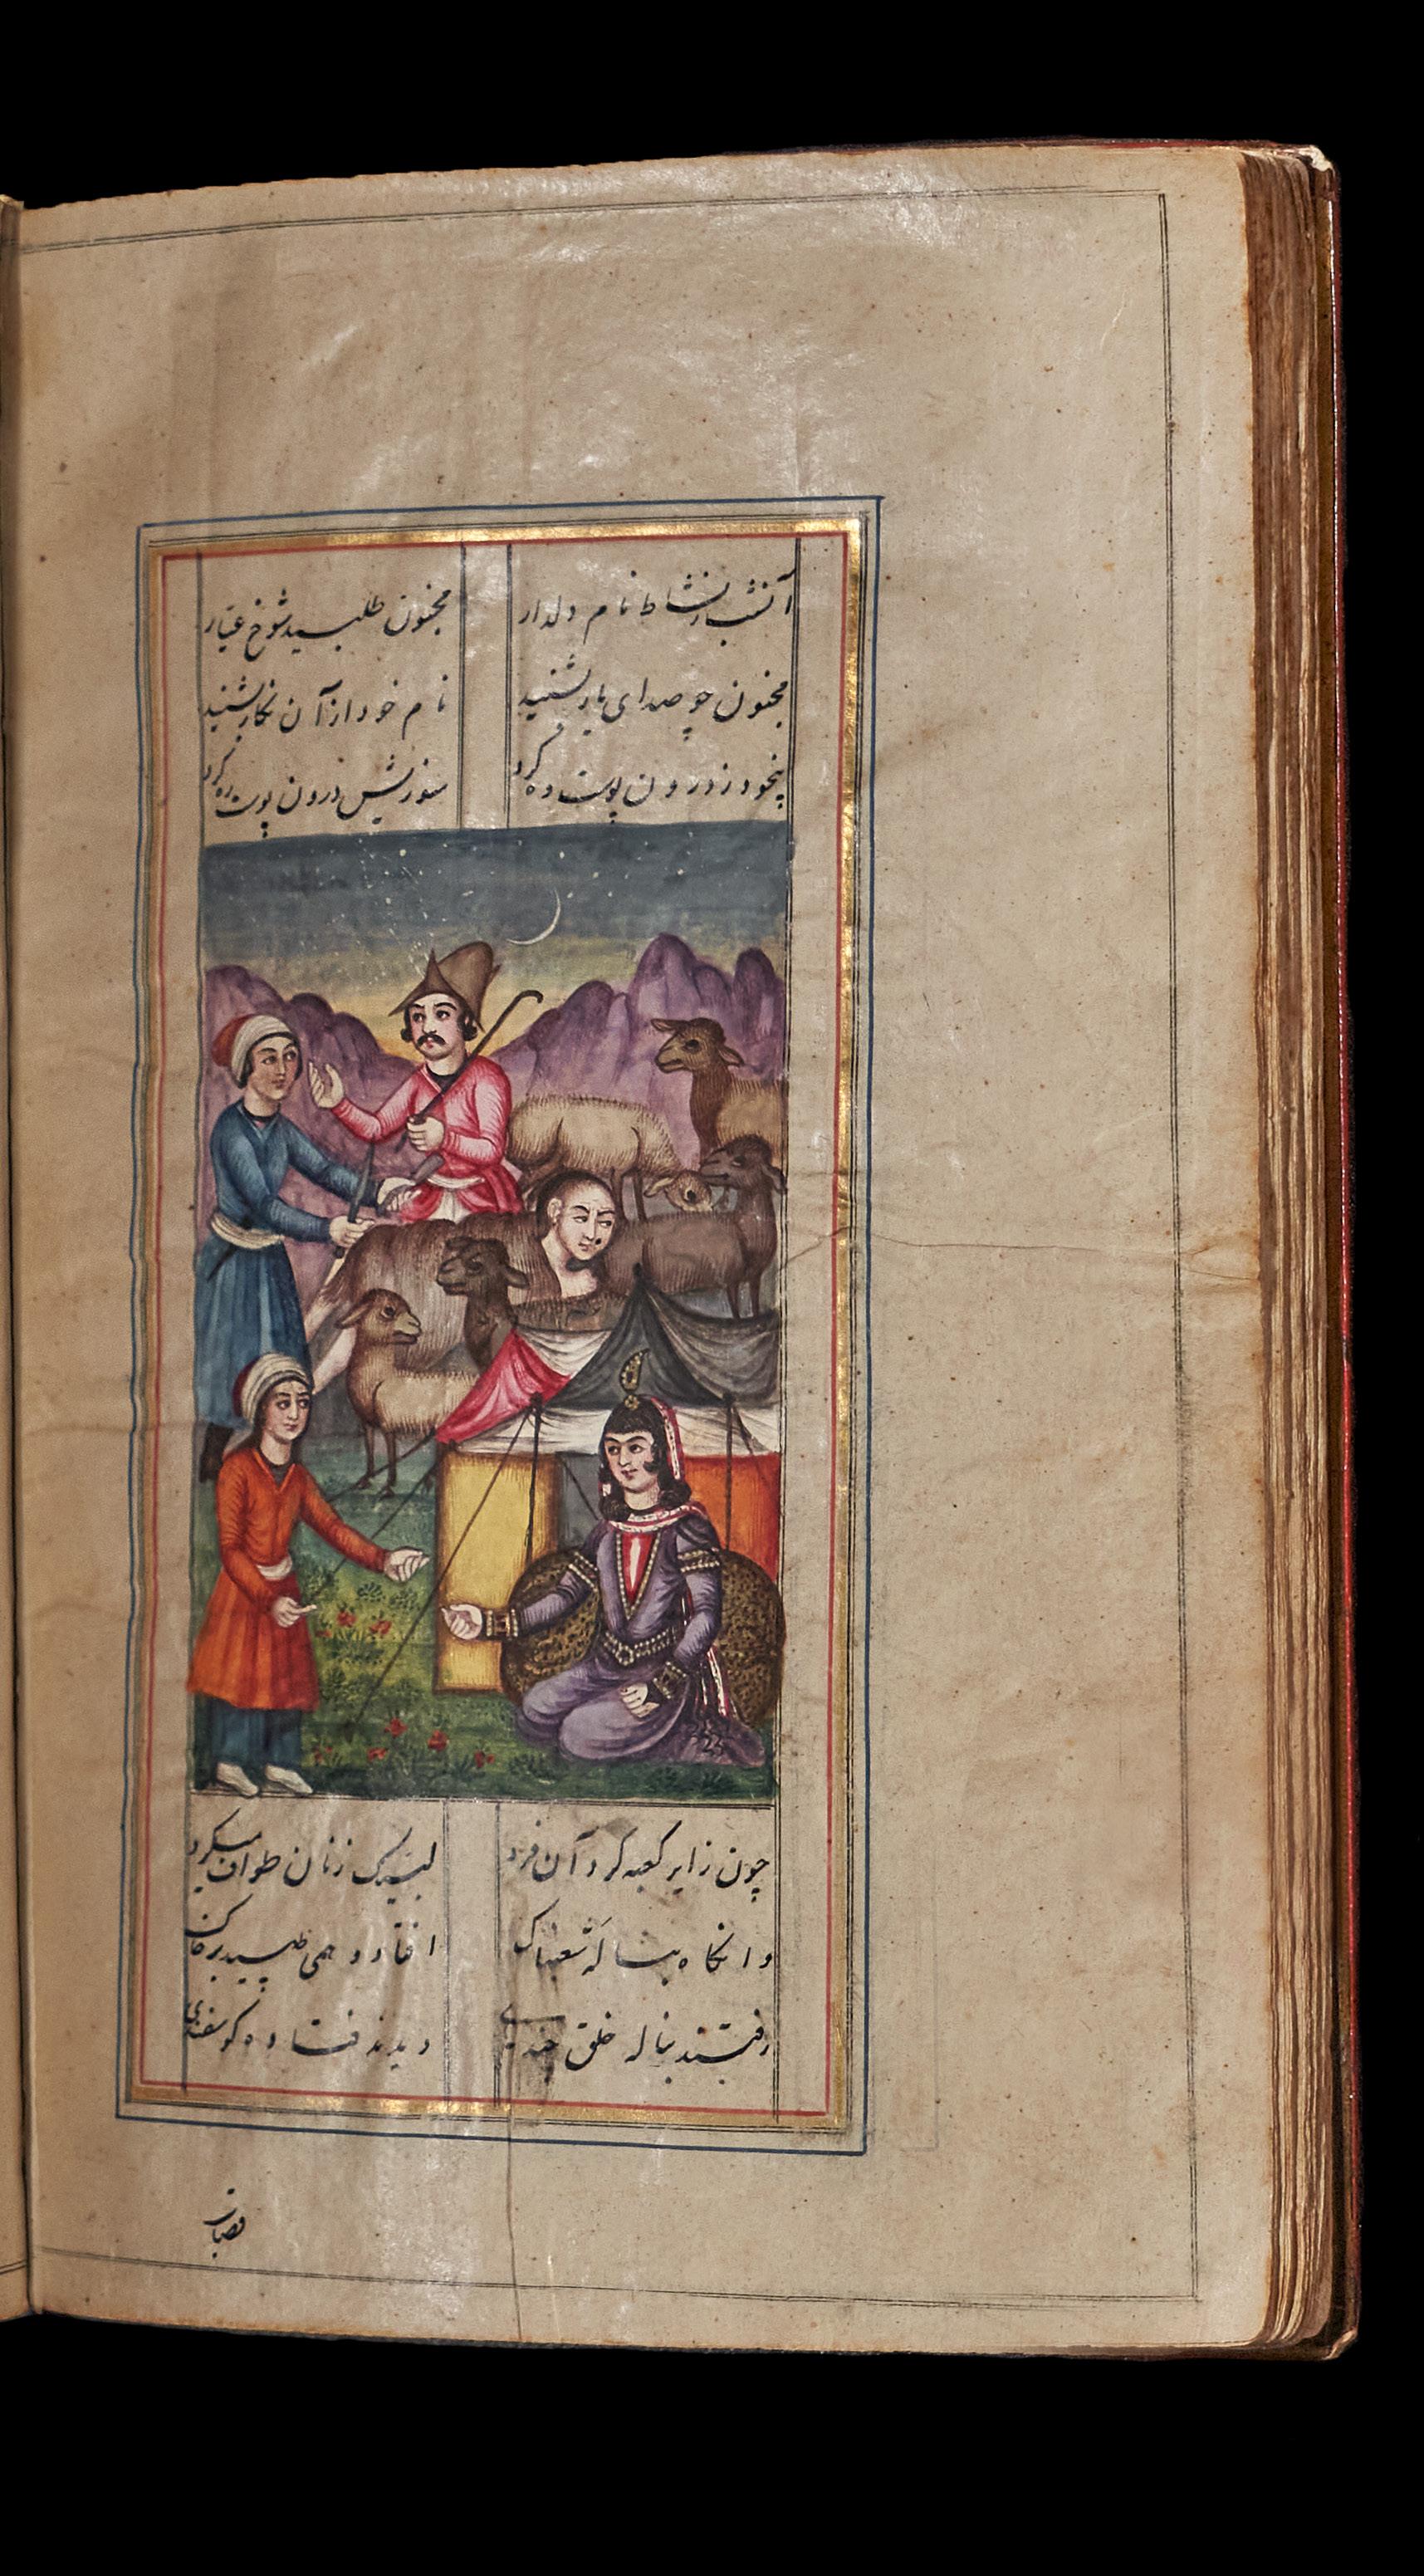 آنشب نشاط نام دلدار مجنون طلبید شوخ عیار
مجنون چو صدای یار بشنید نام خود از آن نگار بشنید
بیخود ز درون پوست ره کرد سوزش درون پوست ره کرد
چون زایر کعبه کرد آن فرد لبیک زنان طواف میکرد
وانگاه بناله شعبناک افتاد و همی طپید بر خاک
رفتند بناله خلق چندی دیدند فتاده گوسفندی
قصاب